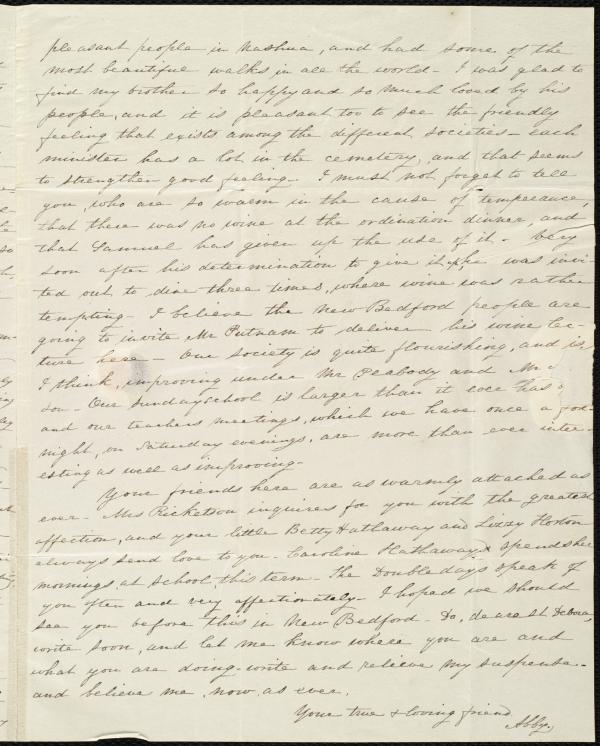 pleasant people in Nashua, and had some of the
most beautiful walks in all the world - I was glad to
find my brother so happy and so much loved by his
people, and it is pleasant too to see the friendly
feeling that exists among the different societies - each
minister has a lot in the cemetery, and that seems
to strengthen good feeling - I must not forget to tell
you, who are so warm in the cause of temperance,
that there was no wine at the ordination dinner, and
that Samuel has given up the use of it - Very
soon after his determination to give it up, he was invi-
ted out to dine three times, where wine was rather
tempting - I believe the New Bedford people are
going to invite Mr Putnam to deliver his wine lec-
ture here - Our society is quite flourishing, and is,
I think, improving under Mr Peabody and Mr
son - Our sundayschool is larger than it ever has
and our teachers meetings, which we have once a fort-
night, on Saturday evenings, are more than ever inter-
esting as well as improving -
Your friends here are as warmly attached as
ever - Mrs Ricketson inquires for you with the greatest
affection, and your little Betty Hathaway and Lizzy Horton
always send love to you - Caroline Hathaway spends her
mornings at school this term - The Doubledays speak of
you often and very affectionately - I hoped we should
see you before this in New Bedford - Do, dearest Debora,
write soon, and let me know where you are and
what you are doing - write and relieve my suspense -
and believe me, now as ever,
Your true & loving friend
Abby.